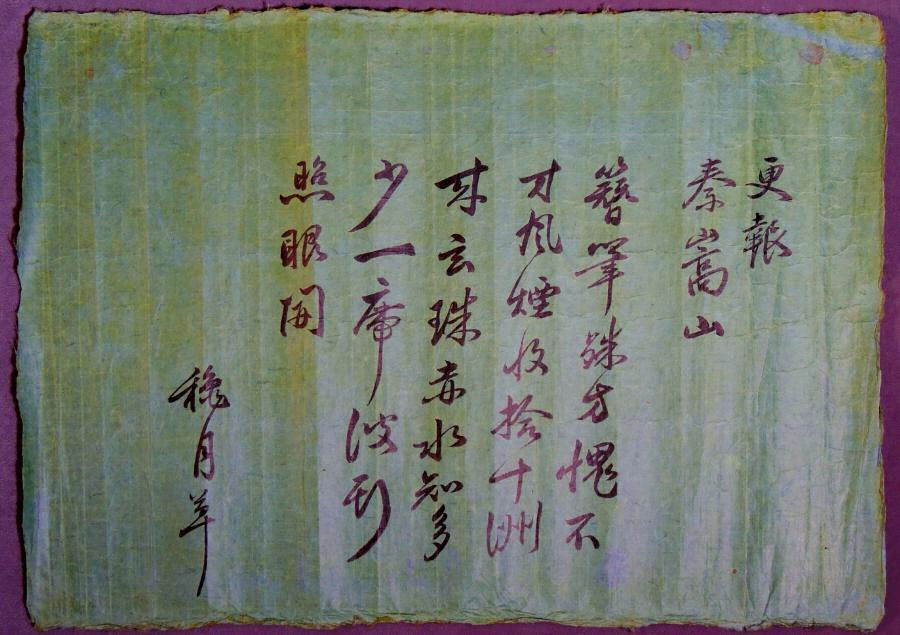 更報
秦嵩山
簪筆殊方愧不
才風煙收拾十洲
來玄珠赤水知多
少一席
照眼開
月草